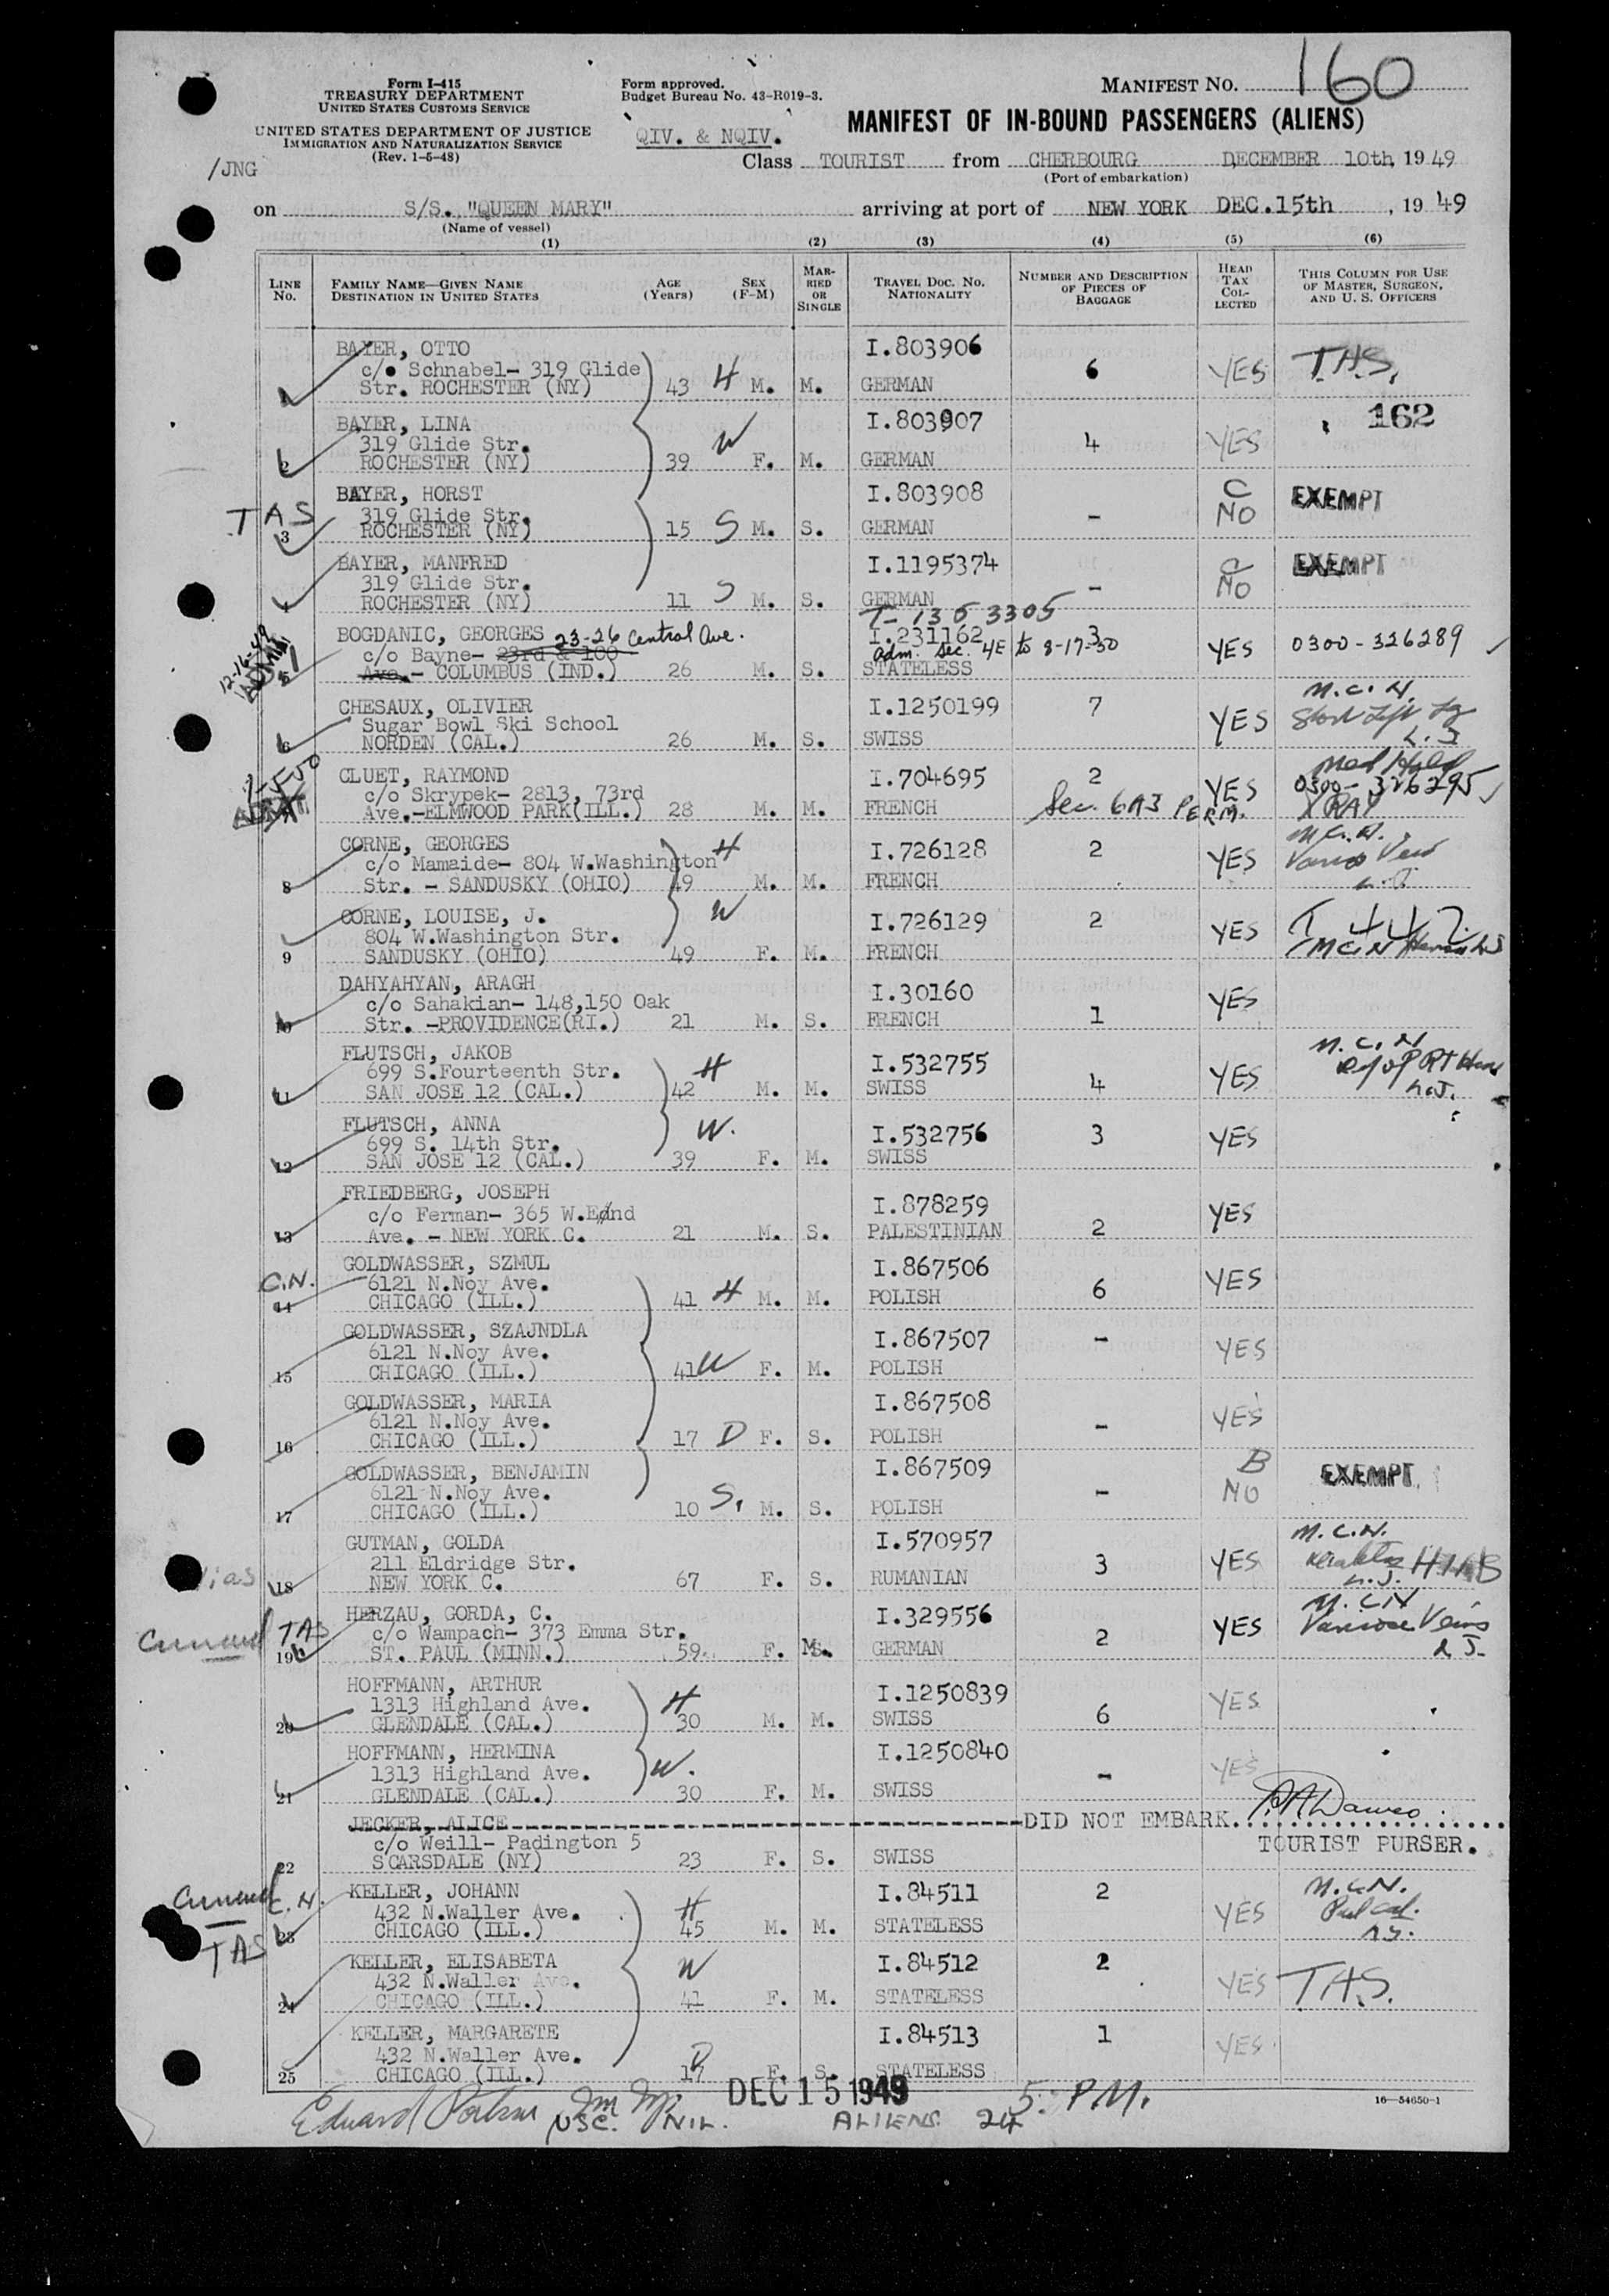 Form I-415
TREASURY DEPARTMENT
UNITED STATES CUSTOMS SERVICE
UNITED STATES DEPARTMENT OF JUSTICE
IMMIGRATION AND NATURALIZATION SERVICE
(Rev. 1-5-48)
/JNG
Form approved.
Budget Bureau No. 43-R019-3.
QIV. & NQIV.
MANIFEST NO. 160
MANIFEST OF IN-BOUND PASSENGERS (ALIENS)
Class TOURIST from CHERBOURG DECEMBER 10th, 1949
(Port of embarkation)
on S/S. "QUEEN MARY" arriving at port of NEW YORK DEC.15th, 1949
(Name of vessel)
(1) (2) (3) (4) (5) (6)
LINE NO. FAMILY NAME—GIVEN NAME DESTINATION IN UNITED STATES AGE (Years) SEX (F-M) MARRIED OR SINGLE TRAVEL DOC. NO. NATIONALITY NUMBER AND DESCRIPTION OF PIECES OF BAGGAGE HEAD TAX COLLECTED THIS COLUMN FOR USE OF MASTER, SURGEON, AND U. S. OFFICERS
BAYER, OTTO I.803906
c/o Schnabel- 319 Glide 6 YES T.A.S.
1 Str. ROCHESTER (NY) 43 H M. M. GERMAN
BAYER, LINA I.803907 162
319 Glide Str. W 4 YES
2 ROCHESTER (NY) 39 F. M. GERMAN
BAYER, HORST I.803908 C EXEMPT
TAS 319 Glide Str. - NO
3 ROCHESTER (NY) 15 S M. S. GERMAN
BAYER, MANFRED I.1195374 C EXEMPT
319 Glide Str. - NO
4 ROCHESTER (NY) 11 S M. S. GERMAN
T-1353305
BOGDANIC, GEORGES 23-26 Central Ave. I.231162 3
12-16-49 ADMIT c/o Bayne- 23rd & 100 adm. Sec. 4E to 8-17-50 YES 0300-326289
5 Ave.- COLUMBUS (IND.) 26 M. S. STATELESS
CHESAUX, OLIVIER I.1250199 7 M.C.N.
Sugar Bowl Ski School YES Short Left Lg
6 NORDEN (CAL.) 26 M. S. SWISS L.J
CLUET, RAYMOND I.704695 2 Med Hold
c/o Skrypek- 2813, 73rd YES 0300-326295
7 Ave.-ELMWOOD PARK(ILL.) 28 M. M. FRENCH Sec. 6A3 PERM. X RAY
CORNE, GEORGES H I.726128 2 M.C.N.
c/o Mamaide- 804 W.Washington YES
8 Str. - SANDUSKY (OHIO) 49 M. M. FRENCH
CORNE, LOUISE, J. W I.726129 2
804 W.Washington Str. YES
9 SANDUSKY (OHIO) 49 F. M. FRENCH MCN
DAHYAHYAN, ARAGH I.30160
c/o Sahakian- 148,150 Oak YES
10 Str. -PROVIDENCE(RI.) 21 M. S. FRENCH 1
FLUTSCH, JAKOB I.532755 M.C.N
699 S.Fourteenth Str. H YES
11 SAN JOSE 12 (CAL.) 42 M. M. SWISS 4 L.J.
FLUTSCH, ANNA W. I.532756 3 YES
699 S. 14th Str.
12 SAN JOSE 12 (CAL.) 39 F. M. SWISS
FRIEDBERG, JOSEPH I.878259
c/o Ferman- 365 W.End YES
13 Ave. - NEW YORK C. 21 M. S. PALESTINIAN 2
GOLDWASSER, SZMUL I.867506
C.N. 6121 N.Noy Ave. YES
14 CHICAGO (ILL.) 41 H M. M. POLISH 6
GOLDWASSER, SZAJNDLA I.867507 -
6121 N.Noy Ave. YES
15 CHICAGO (ILL.) 41 W F. M. POLISH
GOLDWASSER, MARIA I.867508
6121 N.Noy Ave. - YES
16 CHICAGO (ILL.) 17 D F. S. POLISH
GOLDWASSER, BENJAMIN I.867509 B EXEMPT
6121 N.Noy Ave. - NO
17 CHICAGO (ILL.) 10 S. M. S. POLISH
GUTMAN, GOLDA I.570957 M.C.N.
211 Eldridge Str. 3 YES HIAS
18 NEW YORK C. 67 F. S. RUMANIAN L.J.
HERZAU, GORDA, C. I.329556 M.C.N
Cunard TAS c/o Wampach- 373 Emma Str. 2 YES Varicose Veins
19 ST. PAUL (MINN.) 59 F. M. GERMAN L J.
HOFFMANN, ARTHUR I.1250839
1313 Highland Ave. H YES
20 GLENDALE (CAL.) 30 M. M. SWISS 6
HOFFMANN, HERMINA I.1250840
1313 Highland Ave. W. - YES
21 GLENDALE (CAL.) 30 F. M. SWISS
JECKER, ALICE DID NOT EMBARK.
c/o Weill- Padington 5 TOURIST PURSER.
22 SCARSDALE (NY) 23 F. S. SWISS
Cunard C.N. KELLER, JOHANN I.84511 2 M.C.N.
432 N.Waller Ave. H YES
23 CHICAGO (ILL.) 45 M. M. STATELESS
TAS KELLER, ELISABETA W I.84512 2
432 N.Waller Ave. YES T.A.S.
24 CHICAGO (ILL.) 41 F. M. STATELESS
KELLER, MARGARETE I.84513 1
432 N.Waller Ave. D YES
25 CHICAGO (ILL.) 17 F. S. STATELESS
DEC 15 1949 5. P.M. 16—54650-1
Edward USC. NIL. ALIENS 24